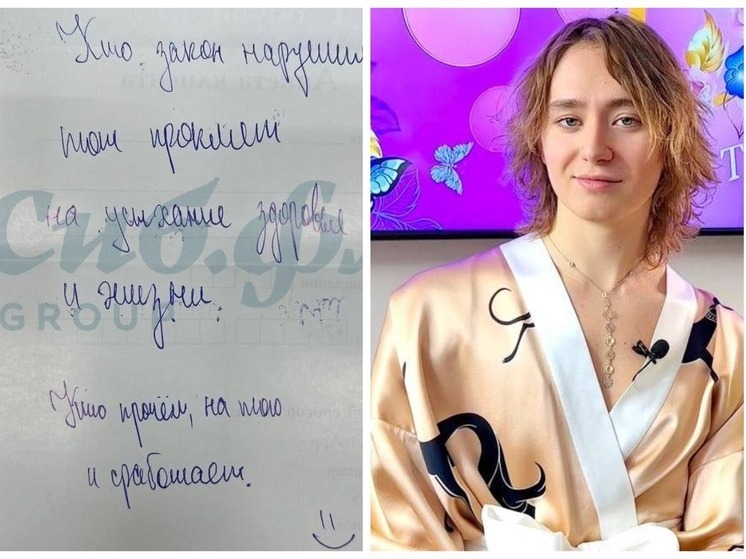 Кто закон нарушил
тот проклят
на усыхание здоровья
и жизни.
Кто прочёл, на того
и сработает.
Сиб.ф.
GROUP